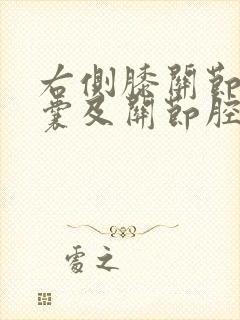 右側膝關節
囊及關節腔
處之